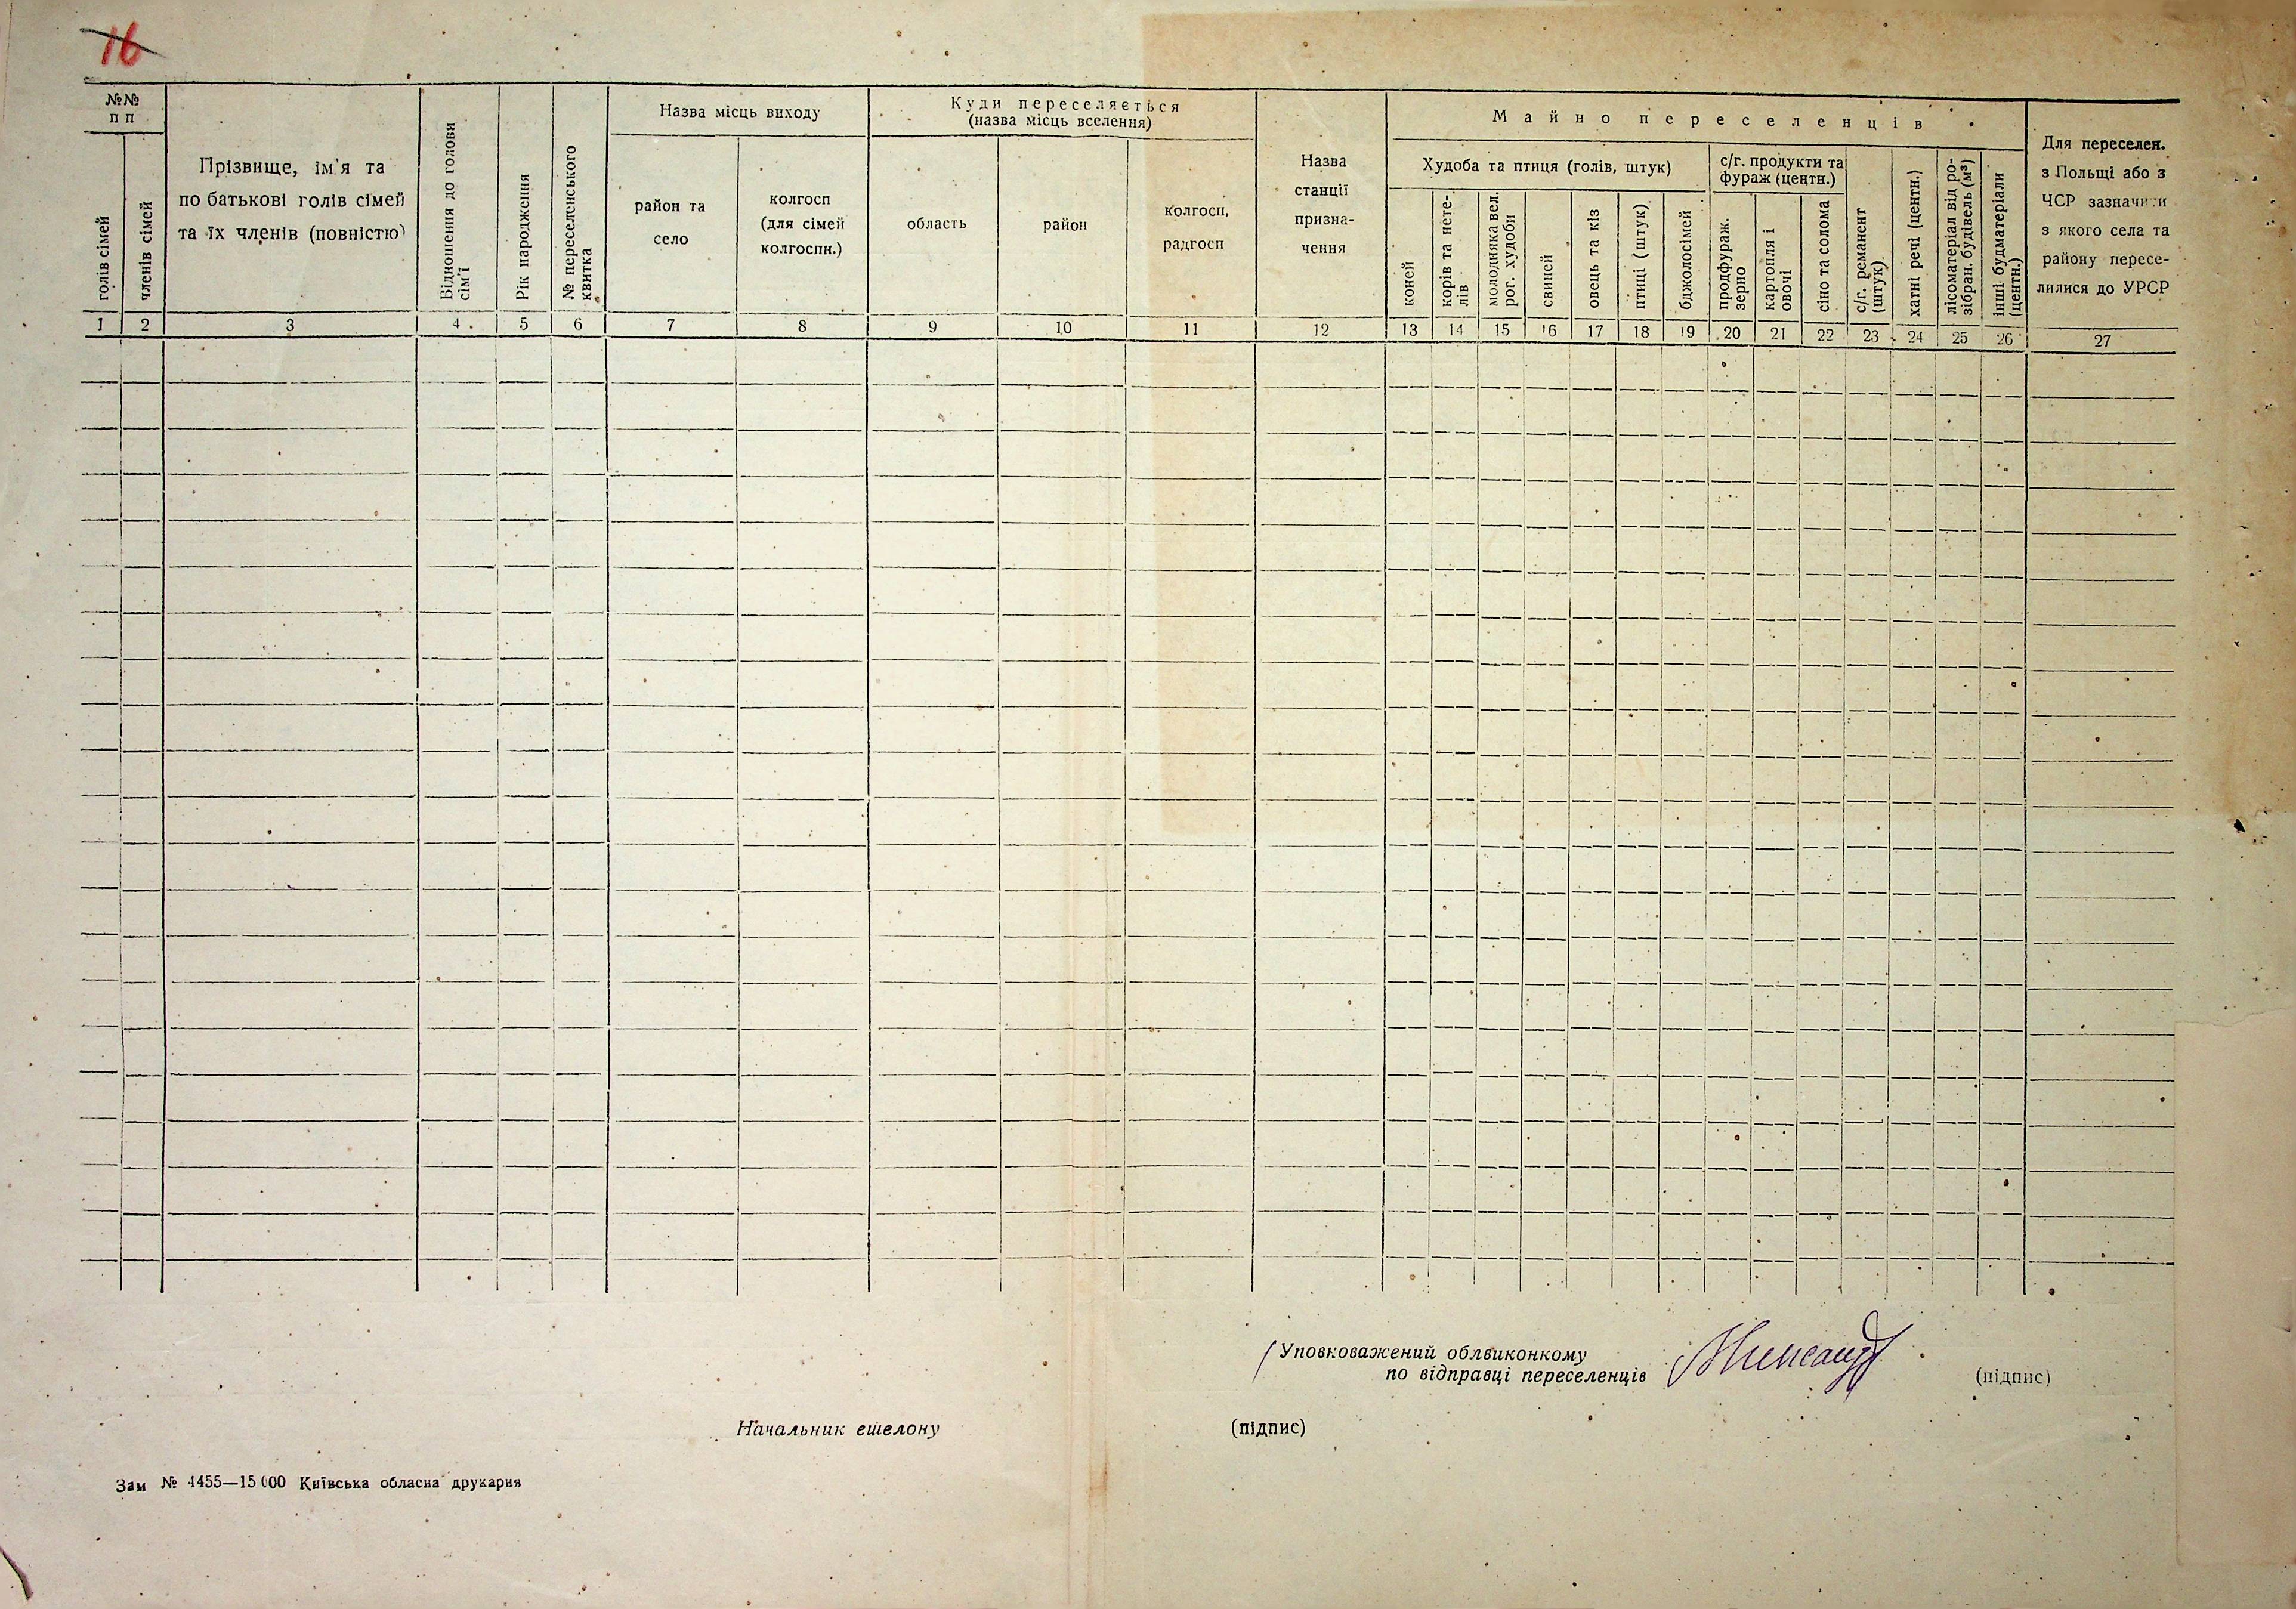 16
№№
п п
голів сімей
членів сімей
Прізвище, ім'я та
по батькові голів сімей
та їх членів (повністю)
Відношення до голови
сім'ї
Рік народження
№ переселенського
квитка
Назва місць виходу
район та
село
колгосп
(для сімей
колгоспн.)
Куди переселяється
(назва місць вселення)
область
район
колгосп,
радгосп
Назва
станції
призна-
чення
Майно переселенців
Худоба та птиця (голів, штук)
коней
корів та нете-
лів
молодняка вел.
рог. худоби
свиней
овець та кіз
птиці (штук)
бджолосімей
с/г. продукти та
фураж (центн.)
продфураж.
зерно
картопля і
овочі
сіно та солома
с/г. реманент
(штук)
хатні речі (центн.)
лісоматеріал від ро-
зібран. будівель (м³)
інші будматеріали
(центн.)
Для переселен.
з Польщі або з
ЧСР зазначити
з якого села та
району пересе-
лилися до УРСР
1 2 3 4 5 6 7 8 9 10 11 12 13 14 15 16 17 18 19 20 21 22 23 24 25 26 27
Уповковажений облвиконкому
по відправці переселенців
(підпис)
Начальник ешелону (підпис)
Зам № 4455—15 000 Київська обласна друкарня